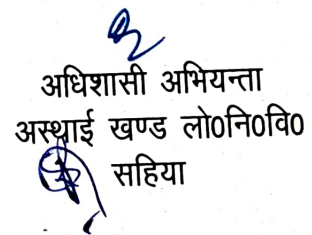 अधिशासी अभियन्ता
अस्थाई खण्ड लो0नि0वि0
सहिया